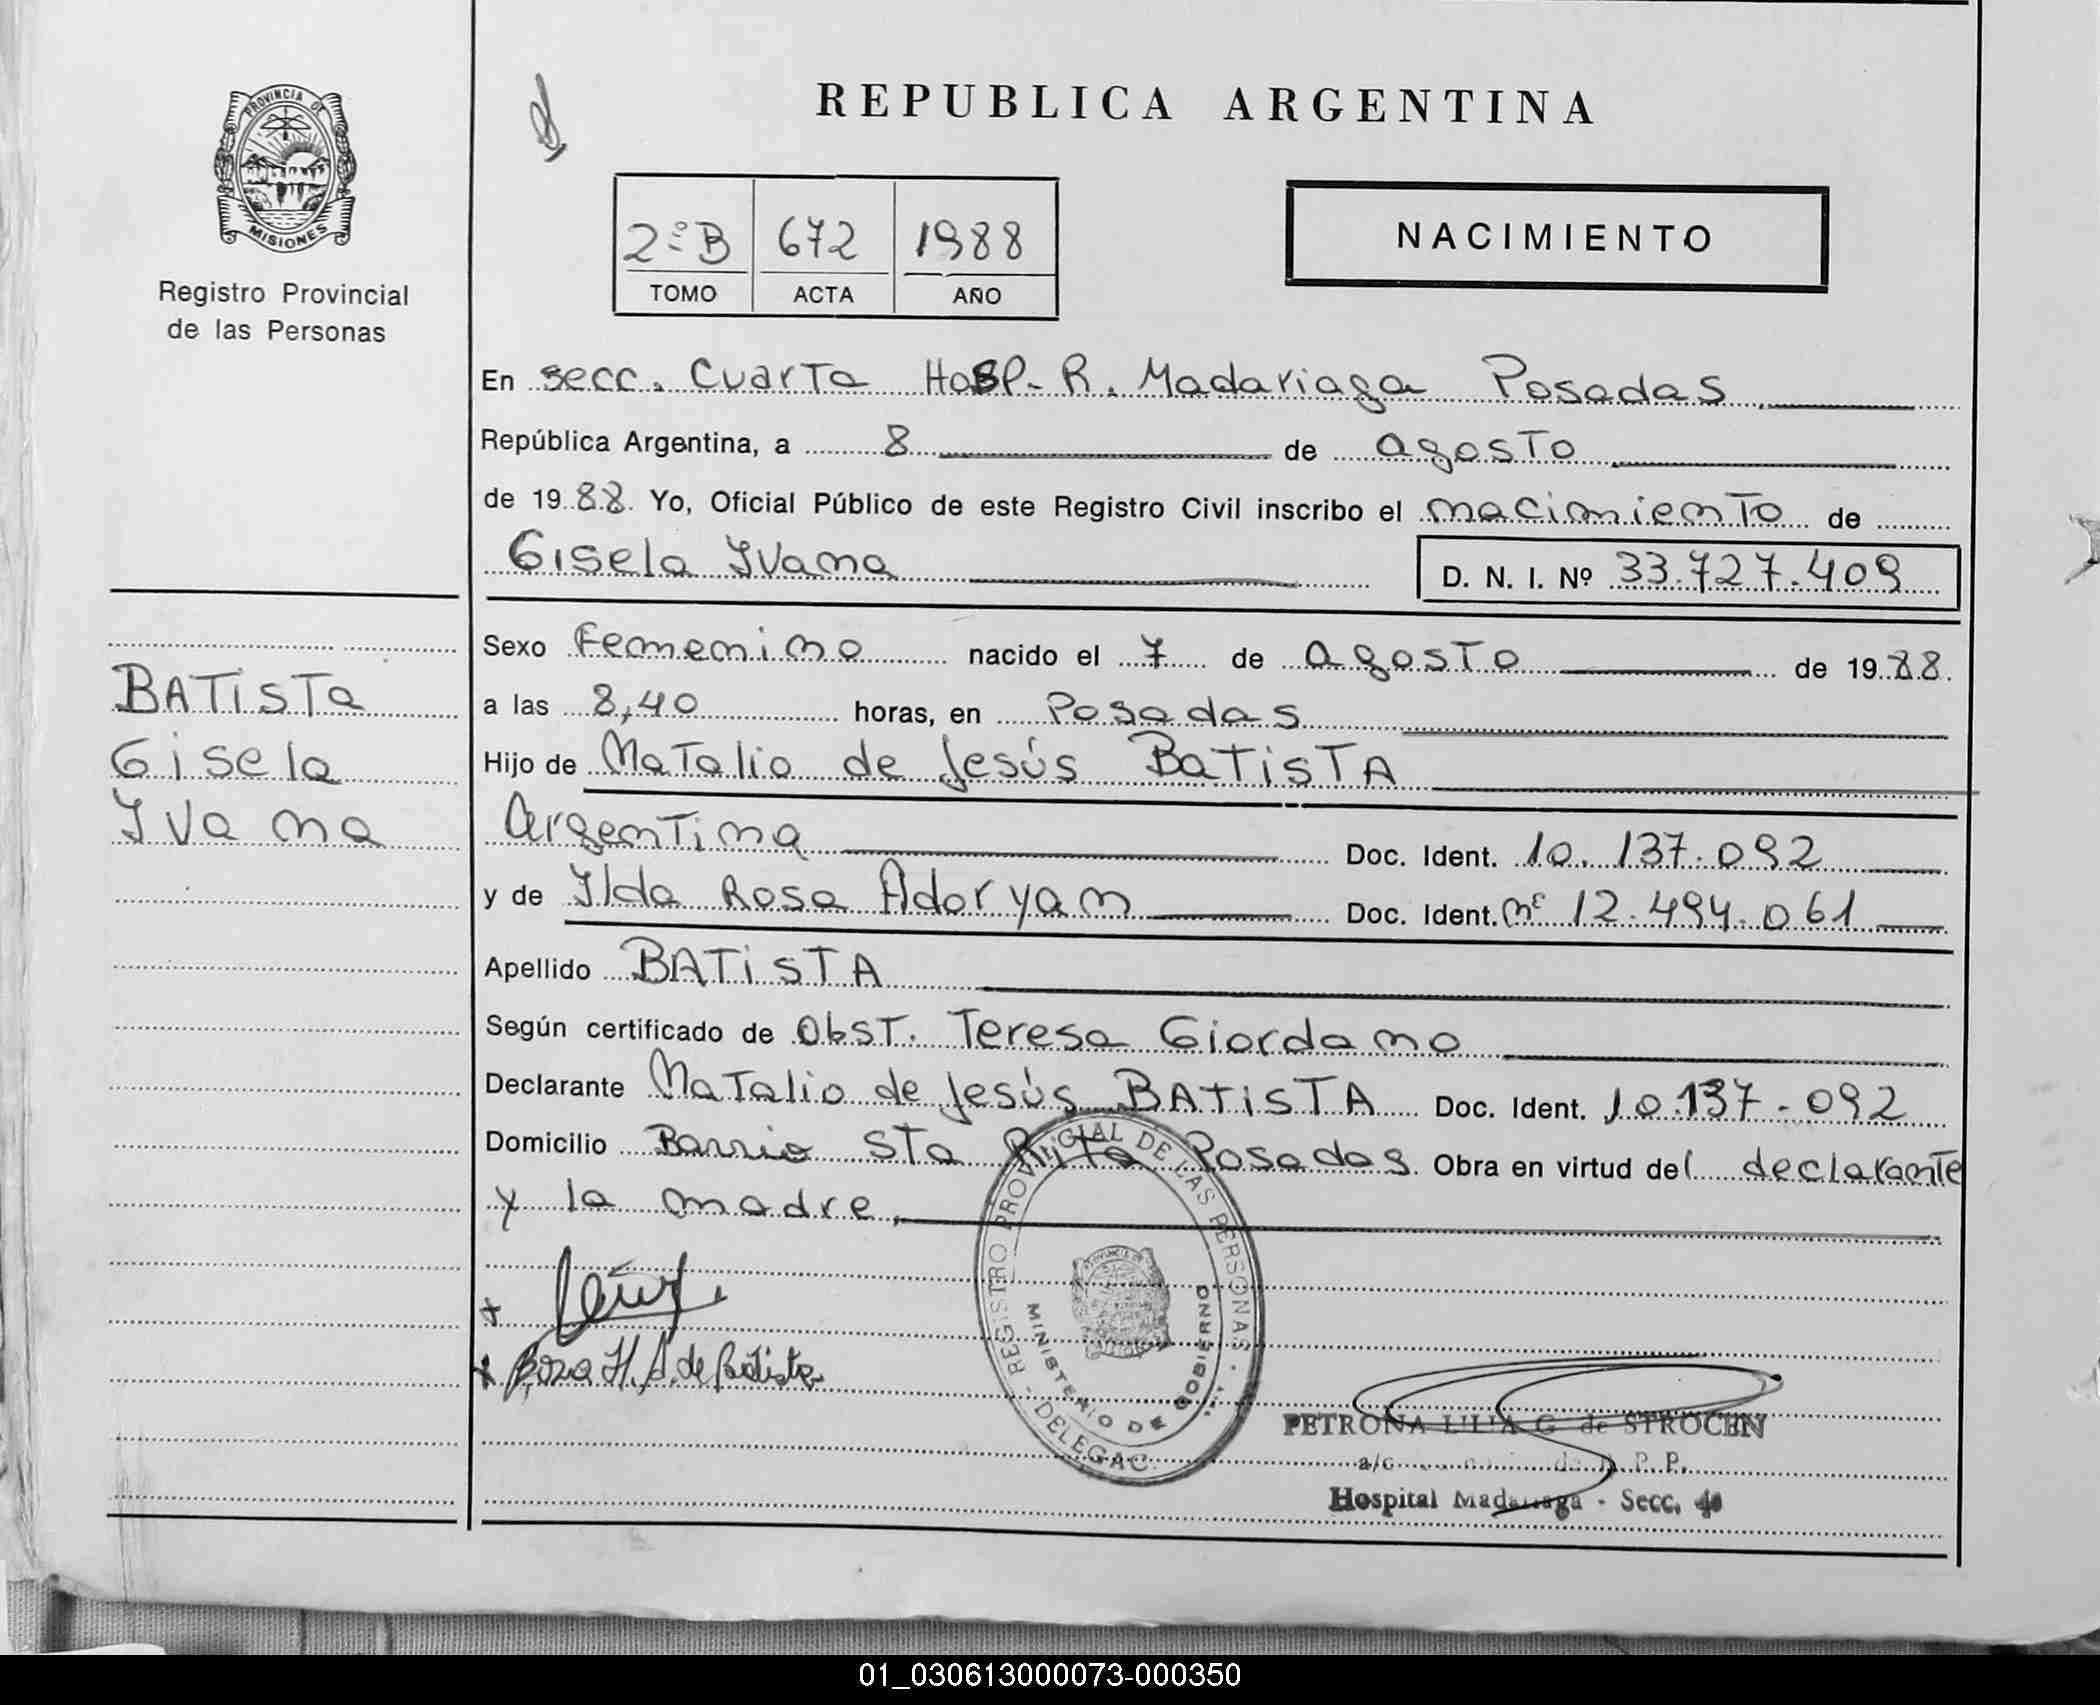 PROVINCIA DE
MISIONES
Registro Provincial
de las Personas
REPUBLICA ARGENTINA
2º B 672 1988
TOMO ACTA AÑO
NACIMIENTO
En secc. Cuarta Hosp. R. Madariaga Posadas
República Argentina, a 8 de agosto
de 1988. Yo, Oficial Público de este Registro Civil inscribo el nacimiento de
Gisela Ivana D. N. I. Nº 33.727.409
Sexo Femenino nacido el 7 de agosto de 1988.
a las 8,40 horas, en Posadas
Hijo de Natalio de Jesús BatisTA
Argentina Doc. Ident. 10.137.092
y de Ilda Rosa Adoryan Doc. Ident. Nº 12.494.061
Apellido BATISTA
Según certificado de Obst. Teresa Giordano
Declarante Natalio de Jesús BATISTA Doc. Ident. 10.137.092
Domicilio Barrio Sta Rita Posadas Obra en virtud del declarante
y la madre,
BATISTa
Gisela
Ivana
Rosa H. A. de Batista
REGISTRO PROVINCIAL DE LAS PERSONAS
MINISTERIO DE GOBIERNO
DELEGAC.
PETRONA LILIA G. de STROCEN
a/c P. P.
Hospital Madariaga - Secc. 4a
01_030613000073-000350